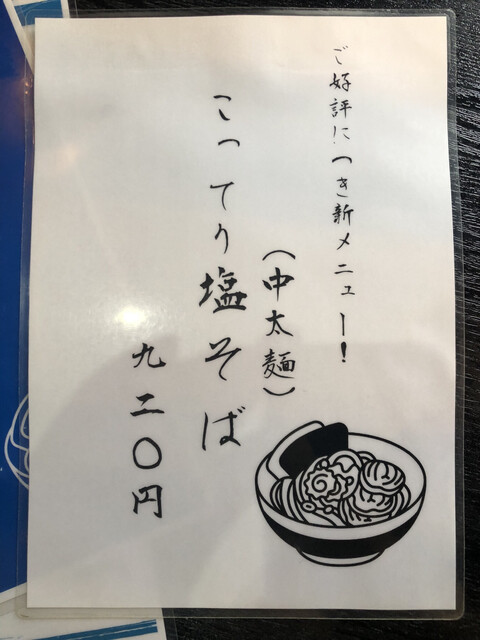 ご好評につき新メニュー!
(中太麺)
こってり塩そば
九二〇円